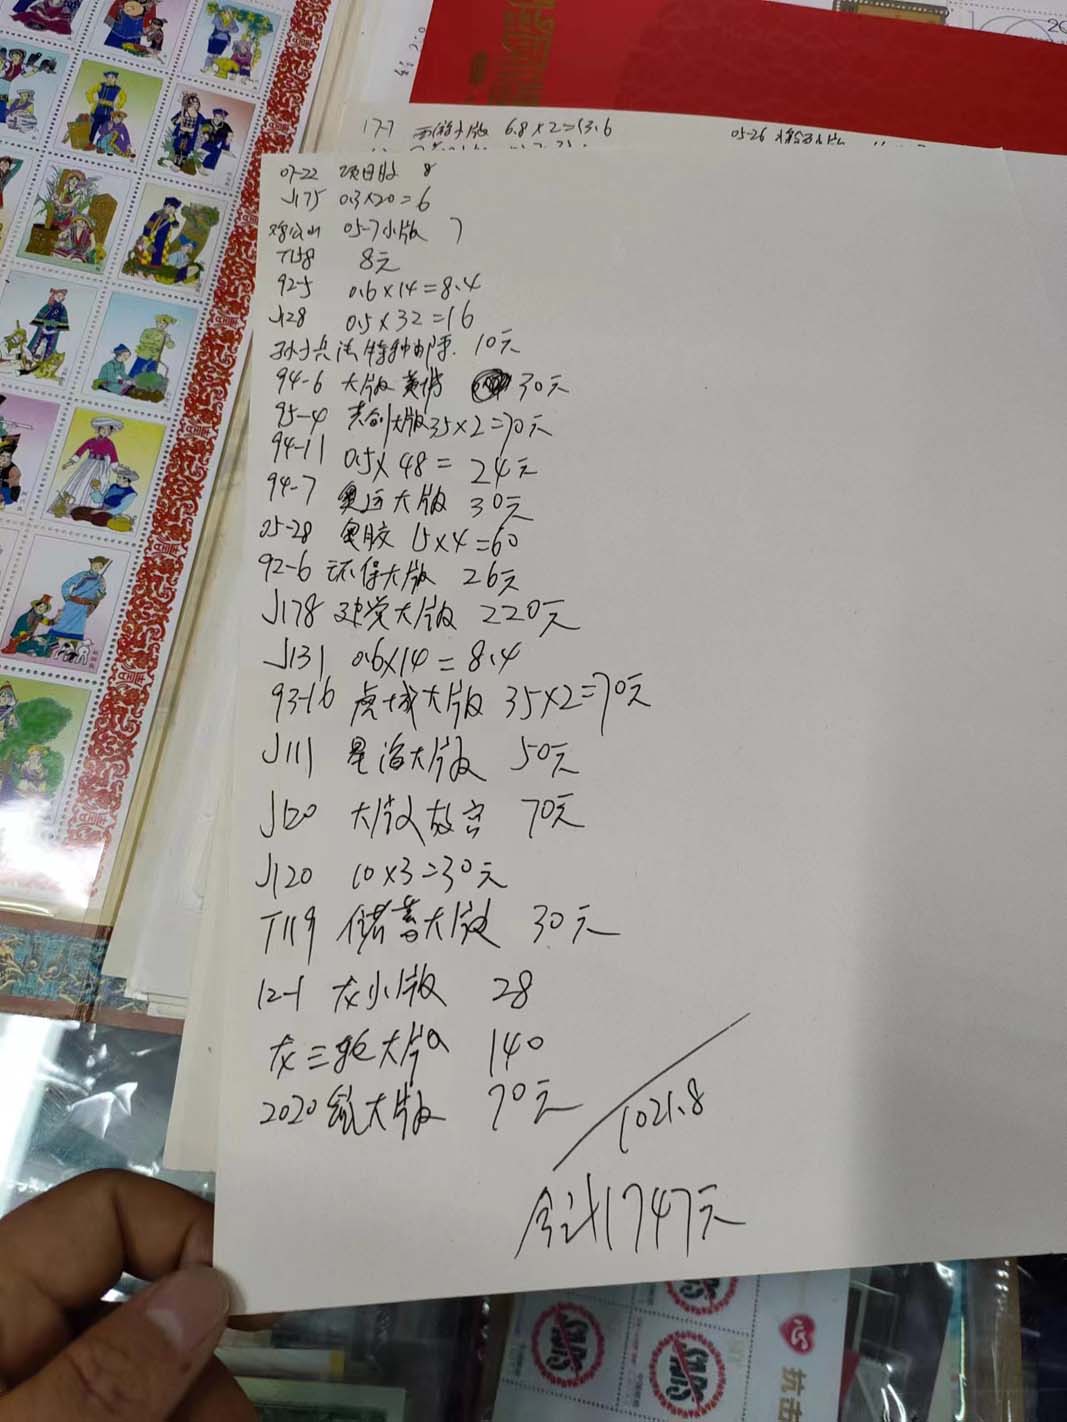 17-7 西游小版 6.8×2=13.6
05-26
07-22 项目胶 8
J175 0.3×20=6
鸡公山 05-7小版 7
T158 8元
92-5 0.6×14=8.4
J128 0.5×32=16
孙子兵法特种邮票 10元
94-6 大版 30元
95-4 大版35×2=70元
94-11 0.5×48= 24元
94-7 奥运大版 30元
05-28 奥胶 15×4=60
92-6 环保大版 26元
J178 建党大版 220元
J131 0.6×14=8.4
93-16 大版 35×2=70元
J111 星海大版 50元
J120 大版故宫 70元
J120 10×3=30元
T119 储蓄大版 30元
12-1 龙小版 28
龙三轮大版 140
2020鼠大版 70元
1021.8
合计1747元
抗击